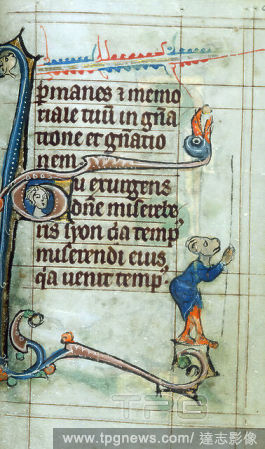 pmanes ⁊ memo
riale tuū in gña
tione et gñatio
nem
u exurgens
dñe misere
ris syon q̄a temp
miserendi eius
q̄a uenit temp
TPG
www.tpgnews.com/ 達志影像